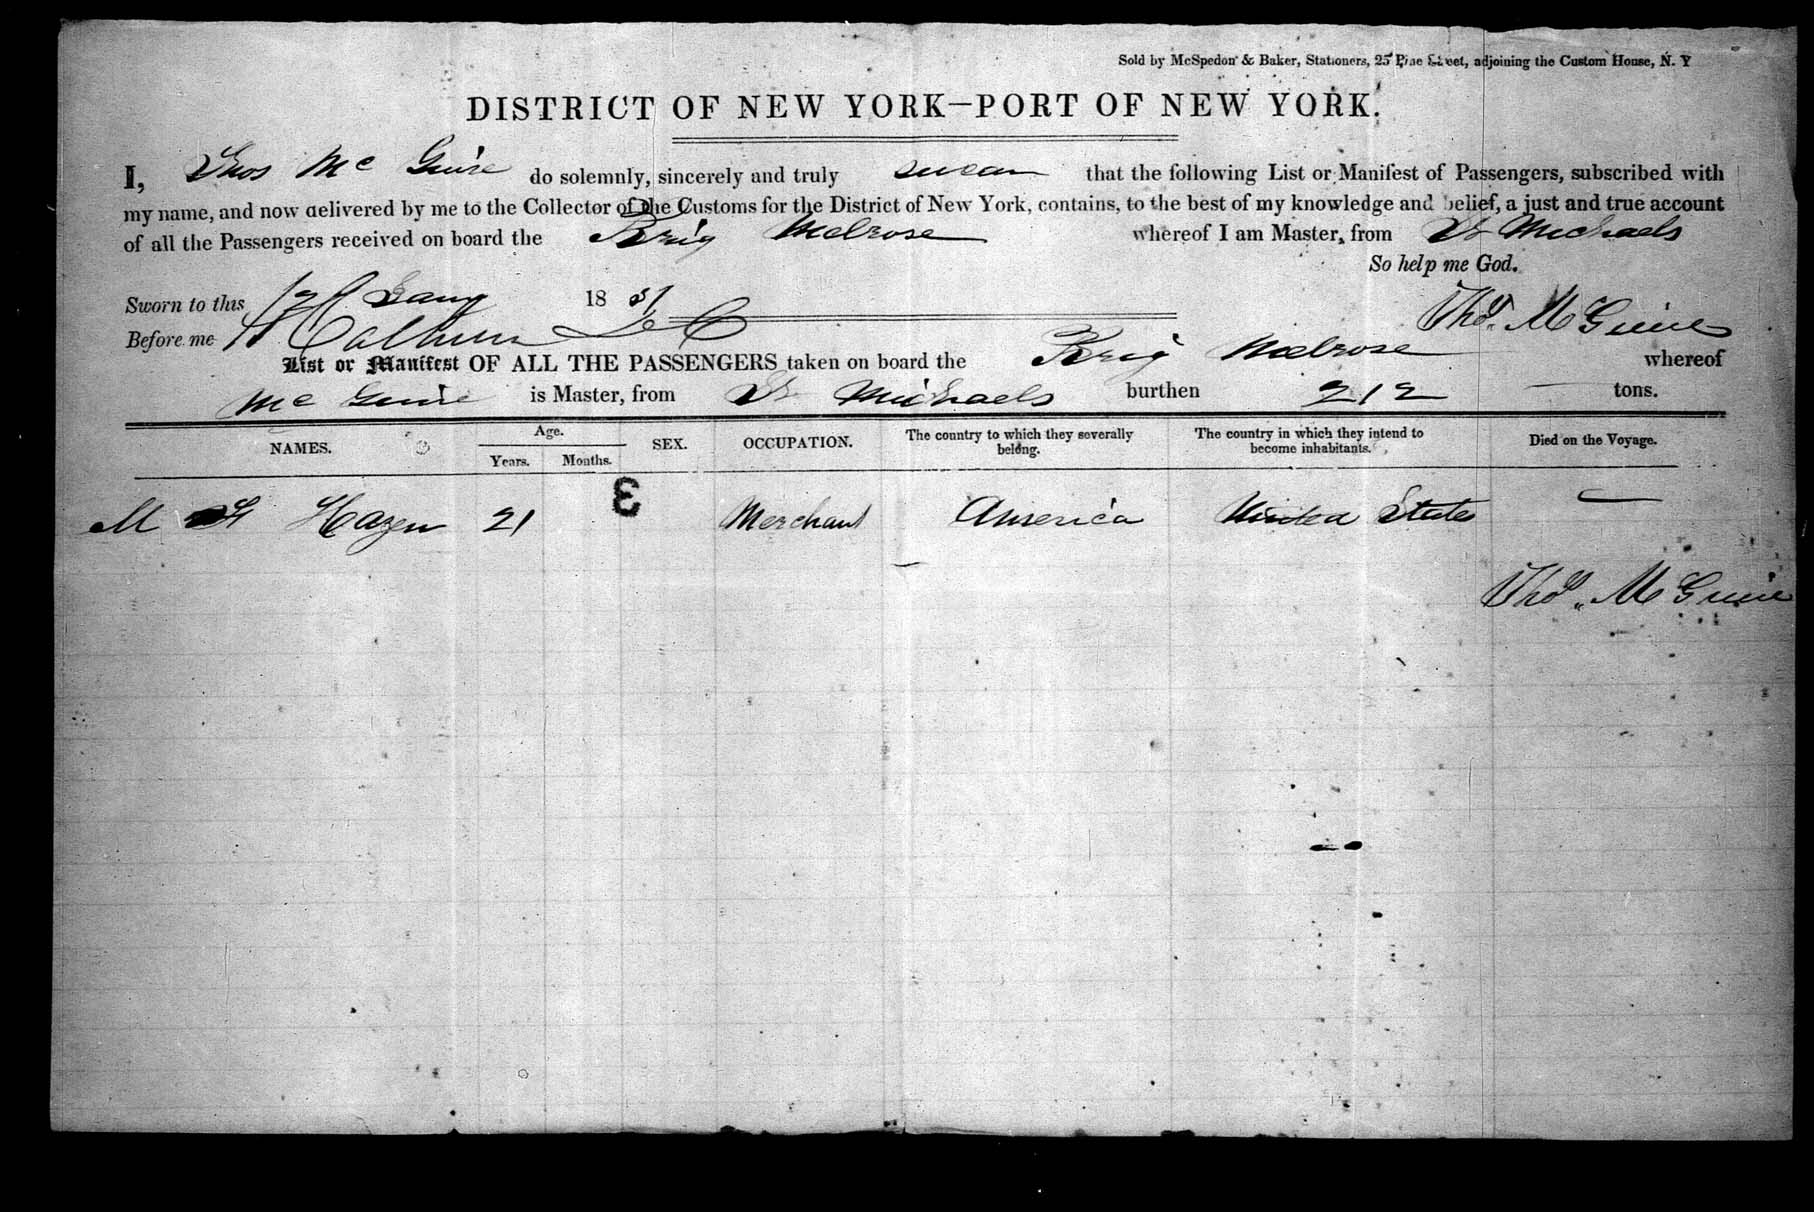 Sold by McSpedon & Baker, Stationers, 25 Pine Street, adjoining the Custom House, N. Y
DISTRICT OF NEW YORK—PORT OF NEW YORK.
I, Thos Mc Guire do solemnly, sincerely and truly swear that the following List or Manifest of Passengers, subscribed with
my name, and now delivered by me to the Collector of the Customs for the District of New York, contains, to the best of my knowledge and belief, a just and true account
of all the Passengers received on board the Brig Melrose whereof I am Master, from St Michaels
So help me God.
Sworn to this 12 Jany 1851
Thos. McGuire
Before me Calhoun
List or Manifest OF ALL THE PASSENGERS taken on board the Brig Melrose whereof
Mc Guire is Master, from St Michaels burthen 212 tons.
NAMES. Age. Years. Months. SEX. OCCUPATION. The country to which they severally belong. The country in which they intend to become inhabitants. Died on the Voyage.
3
M Hazen 21 Merchant America United States —
Thos. McGuire